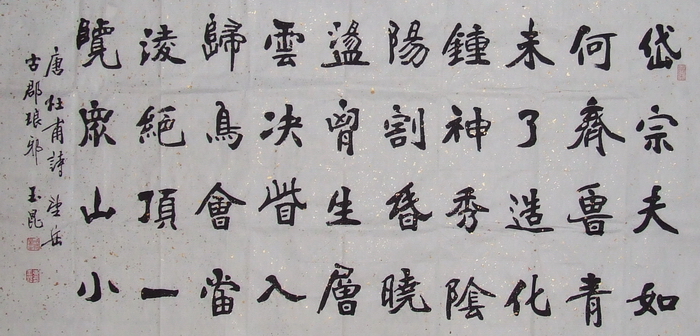 岱宗夫如
何齊魯青
未了造化
鍾神秀陰
陽割昬曉
盪胷生層
雲决眥入
歸鳥會當
淩絕頂一
覽衆山小
唐杜甫詩望岳
古郡琅邪玉昆